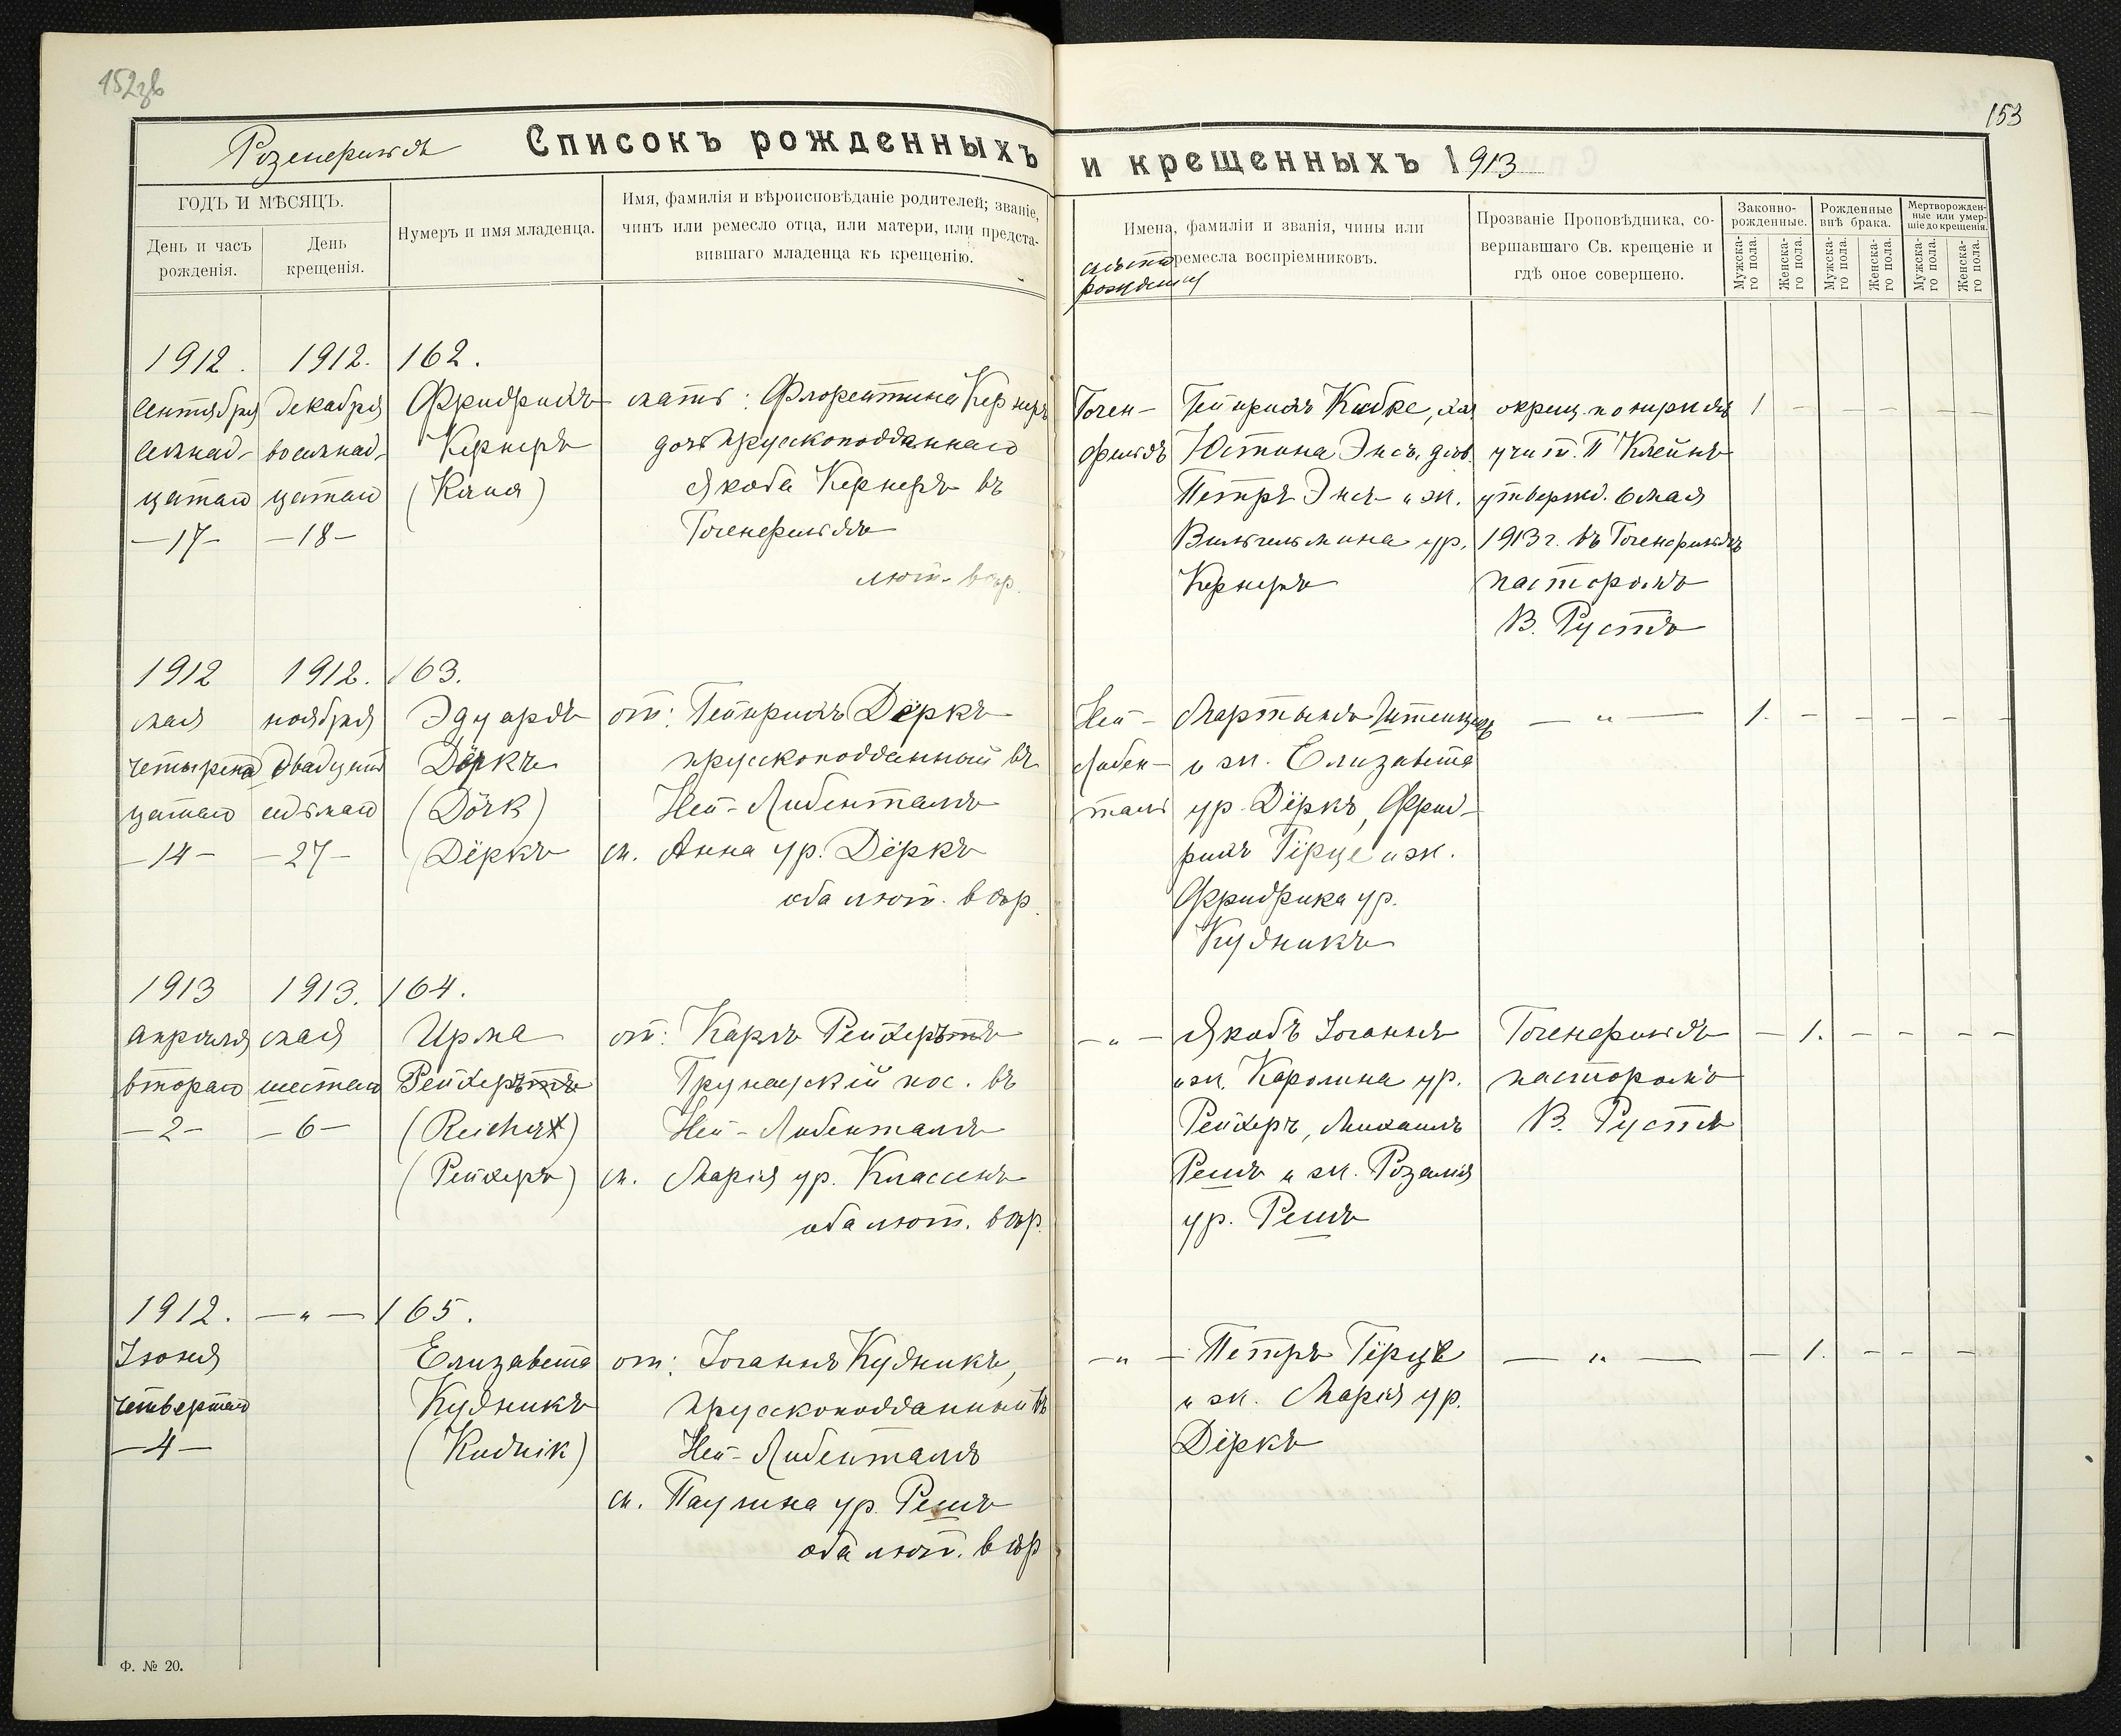 152зв
153
Розенфельдъ
Списокъ рожденныхъ и крещенныхъ 1913
ГОДЪ И МѢСЯЦЪ.
День и часъ рожденія.
День крещенія.
Нумеръ и имя младенца.
Имя, фамилія и вѣроисповѣданіе родителей; званіе,
чинъ или ремесло отца, или матери, или предста-
вившаго младенца къ крещенію.
мѣсто рожденія
Имена, фамиліи и званія, чины или
ремесла воспріемниковъ.
Прозваніе Проповѣдника, со-
вершавшаго Св. крещеніе и
гдѣ оное совершено.
Законно-рожденные.
Рожденные внѣ брака.
Мертворожден-ные или умер-шіе до крещенія.
Мужска-го пола.
Женска-го пола.
Мужска-го пола.
Женска-го пола.
Мужска-го пола.
Женска-го пола.
1912.
сентября
семнад-
цатаго
-17-
1912.
декабря
восемнад-
цатаго
-18-
162.
Фридрихъ
Кернеръ
мать: Флорентина Кернеръ
дочь прускоподданнаго
Якоба Кернеръ въ
Гохенфельдъ
лют. вѣр.
Гохен-
фельдъ
Гейнрихъ
Юстина Энсъ, дѣв.
Петръ Энсъ и ж.
Вильгельмина ур.
Кернеръ
учит. П Клейнъ
утвержд. 6 мая
1913 г. въ Гохенфельдъ
пасторомъ
В. Густъ
1 - - - - -
1912
мая
четырена
цатаго
-14-
1912.
ноября
двадцать
седьмаго
-27-
163.
Эдуардъ
Дёркъ
(Dörk)
(Дёркъ
от: Гейнрихъ Дёркъ
прускоподданный въ
Ней-Либенталъ
м. Анна ур. Дёркъ
оба лют. вѣр.
Ней-
Либен-
таль
Мартынъ
и ж. Елизавета
ур. Дёркъ, Фрид-
рихъ Гёрце и ж.
Фридрика ур.
Кудникъ
- " -
1. - - - - -
1913
апрѣля
втораго
-2-
1913.
мая
шестаго
-6-
164.
Ирма
Рейхертъ
(Reichert)
(Рейхеръ)
от: Карлъ Рейхертъ
Грунаускій пос. въ
Ней-Либенталъ
м. Марія ур. Классенъ
оба лют. вѣр.
- " -
Якобъ Іоганнъ
и ж. Каролина ур.
Рейхеръ, Михаилъ
Решъ и ж. Розалія
ур. Решъ
Гохенфельдъ
пасторомъ
В. Густъ
- 1. - - - -
1912.
Іюня
четвертаго
-4-
- " -
165.
Елизавета
Кудникъ
(Kudnik)
от: Іоганнъ Кудникъ,
прускоподданный въ
Ней-Либенталъ
м. Паулина ур. Решъ
оба лют. вѣр
- " -
Петръ Гёрце
и ж. Марія ур.
Дёркъ
- " -
- 1. - - -
Ф. № 20.